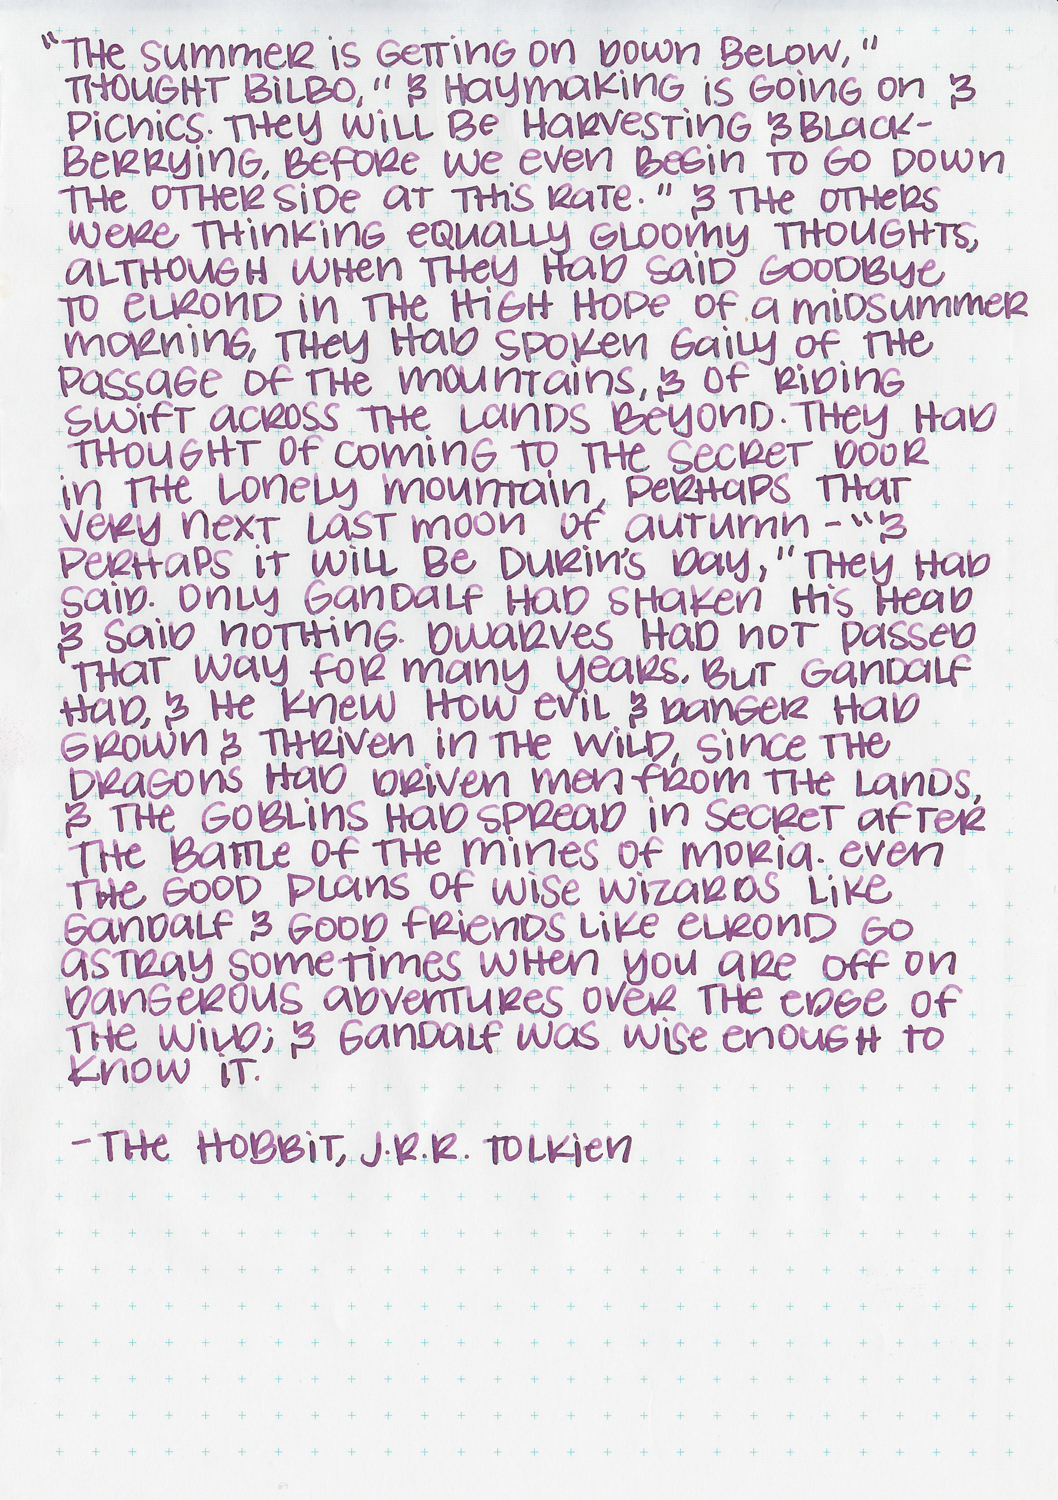 "The summer is getting on down below,"
thought Bilbo, "& haymaking is going on &
picnics. They will be harvesting & black-
berrying, before we even begin to go down
the other side at this rate." & the others
were thinking equally gloomy thoughts,
although when they had said goodbye
to Elrond in the high hope of a midsummer
morning, they had spoken gaily of the
passage of the mountains, & of riding
swift across the lands beyond. They had
thought of coming to the secret door
in the Lonely Mountain, perhaps that
very next last moon of autumn - "&
perhaps it will be Durin's Day," they had
said. Only Gandalf had shaken his head
& said nothing. Dwarves had not passed
that way for many years. But Gandalf
had, & he knew how evil & danger had
grown & thriven in the Wild, since the
dragons had driven men from the lands,
& the goblins had spread in secret after
the Battle of the Mines of Moria. Even
the good plans of wise wizards like
Gandalf & good friends like Elrond go
astray sometimes when you are off on
dangerous adventures over the Edge of
the Wild; & Gandalf was wise enough to
know it.
- The Hobbit, J.R.R. Tolkien